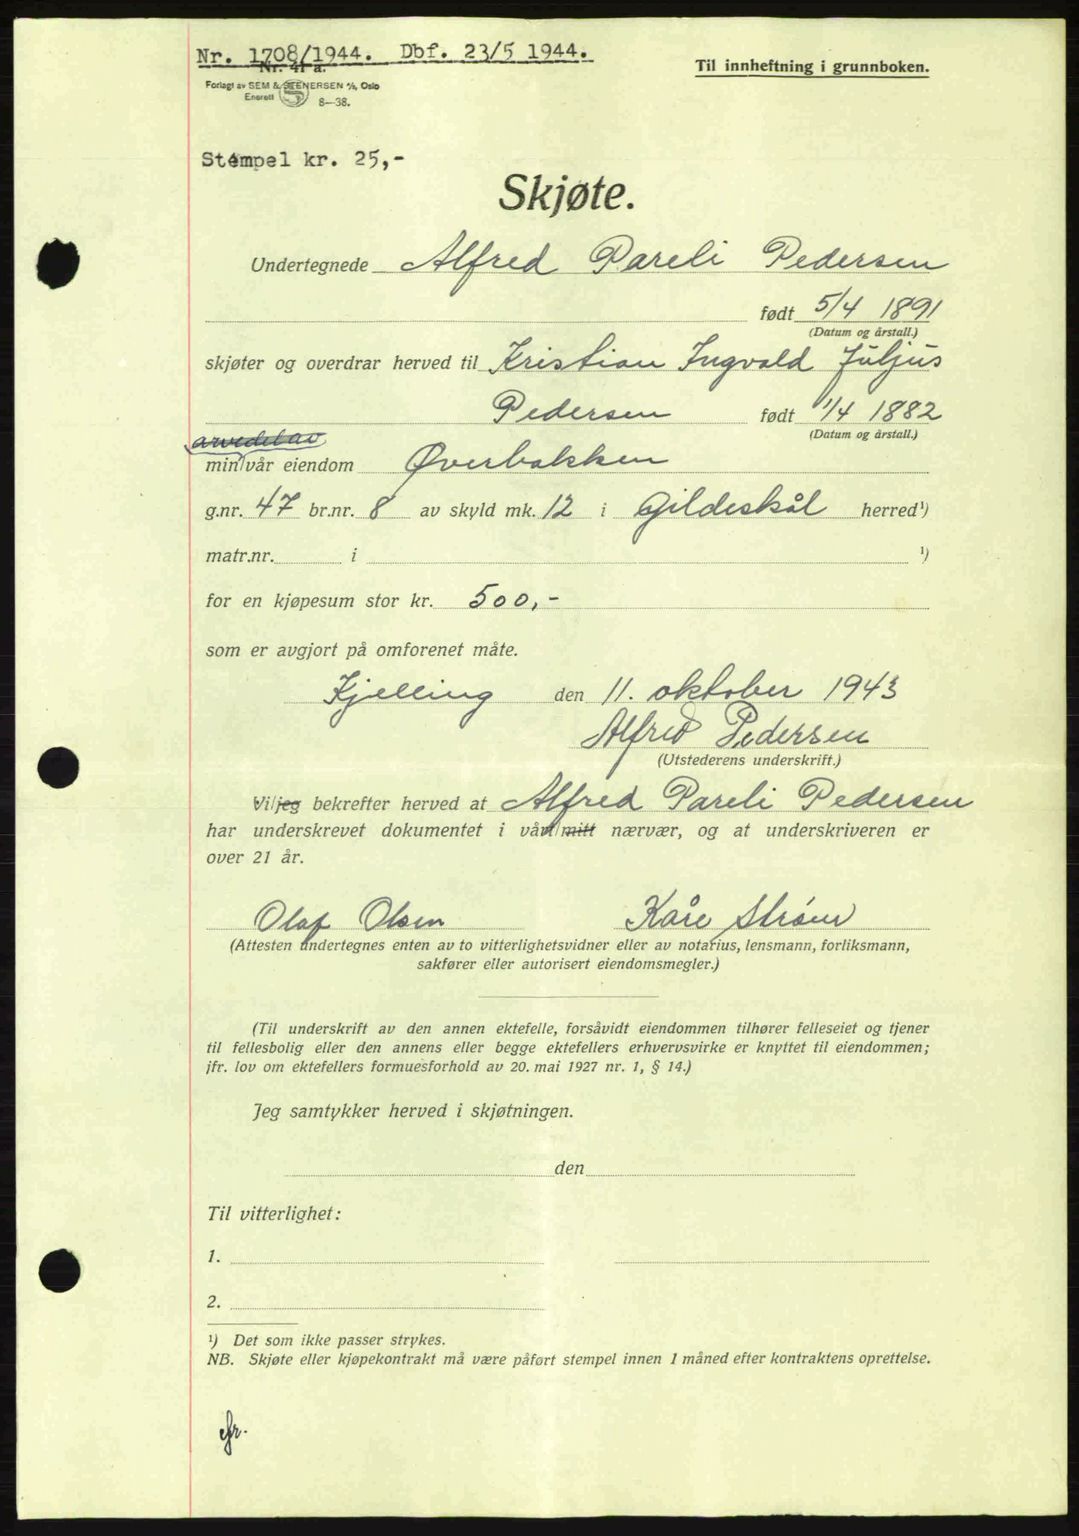 Nr. 1708/1944. Dbf. 23/5 1944.
Til innheftning i grunnboken.
Nr. 41 a.
Forlagt av SEM & STENERSEN A/S, Oslo
Enerett S 8—38.
Stempel kr. 25,-
Skjøte.
Undertegnede Alfred Pareli Pedersen
født 5/4 1891
(Datum og årstall.)
skjøter og overdrar herved til Kristian Ingvald Juljus
Pedersen født 1/4 1882
(Datum og årstall.)
arvedel av
min/vår eiendom Øverbakken
g.nr. 47 br.nr. 8 av skyld mk. 12 i Gildeskål herred¹)
matr.nr. i ¹)
for en kjøpesum stor kr. 500,-
som er avgjort på omforenet måte.
Kjelling den 11. oktober 1943
Alfred Pedersen
(Utstederens underskrift.)
Vi/jeg bekrefter herved at Alfred Pareli Pedersen
har underskrevet dokumentet i vårt/mitt nærvær, og at underskriveren er
over 21 år.
Olaf Olsen Kåre Strøm
(Attesten undertegnes enten av to vitterlighetsvidner eller av notarius, lensmann, forliksmann,
sakfører eller autorisert eiendomsmegler.)
(Til underskrift av den annen ektefelle, forsåvidt eiendommen tilhører felleseiet og tjener
til fellesbolig eller den annens eller begge ektefellers erhvervsvirke er knyttet til eiendommen;
jfr. lov om ektefellers formuesforhold av 20. mai 1927 nr. 1, § 14.)
Jeg samtykker herved i skjøtningen.
den
Til vitterlighet:
1.
2.
¹) Det som ikke passer strykes.
NB. Skjøte eller kjøpekontrakt må være påført stempel innen 1 måned efter kontraktens oprettelse.